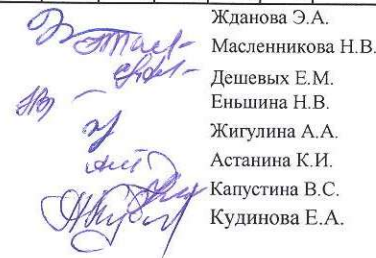 Жданова Э.А.
Масленникова Н.В.
Дешевых Е.М.
Еньшина Н.В.
Жигулина А.А.
Астанина К.И.
Капустина В.С.
Кудинова Е.А.